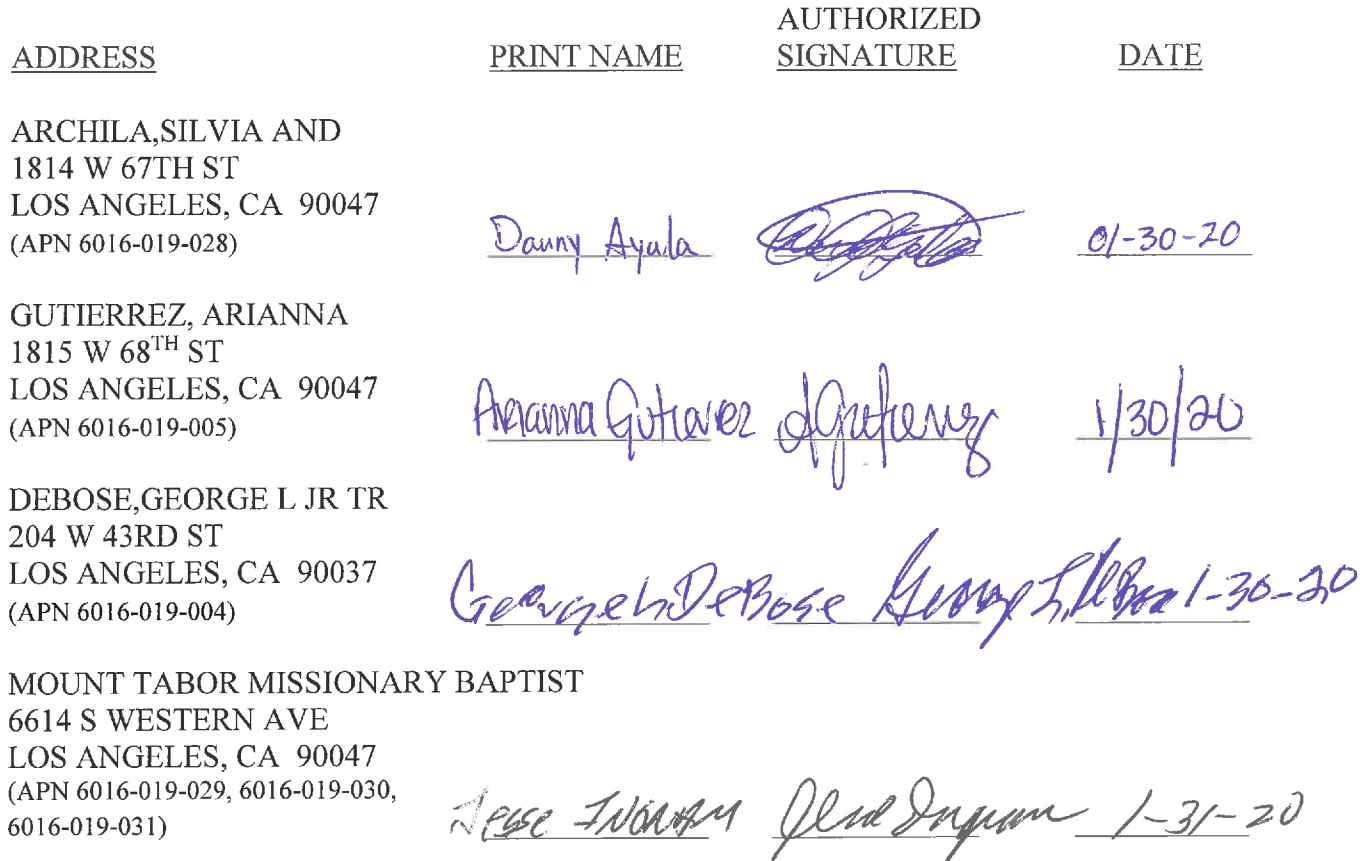 ADDRESS PRINT NAME AUTHORIZED SIGNATURE DATE
ARCHILA,SILVIA AND
1814 W 67TH ST
LOS ANGELES, CA 90047
(APN 6016-019-028) Danny Ayala 01-30-20
GUTIERREZ, ARIANNA
1815 W 68TH ST
LOS ANGELES, CA 90047
(APN 6016-019-005) Arianna Gutierrez AGutierrez 1/30/20
DEBOSE,GEORGE L JR TR
204 W 43RD ST
LOS ANGELES, CA 90037
(APN 6016-019-004) George L DeBose George L, DeBose 1-30-20
MOUNT TABOR MISSIONARY BAPTIST
6614 S WESTERN AVE
LOS ANGELES, CA 90047
(APN 6016-019-029, 6016-019-030,
6016-019-031) Jesse INGRAM Jesse Ingram 1-31-20